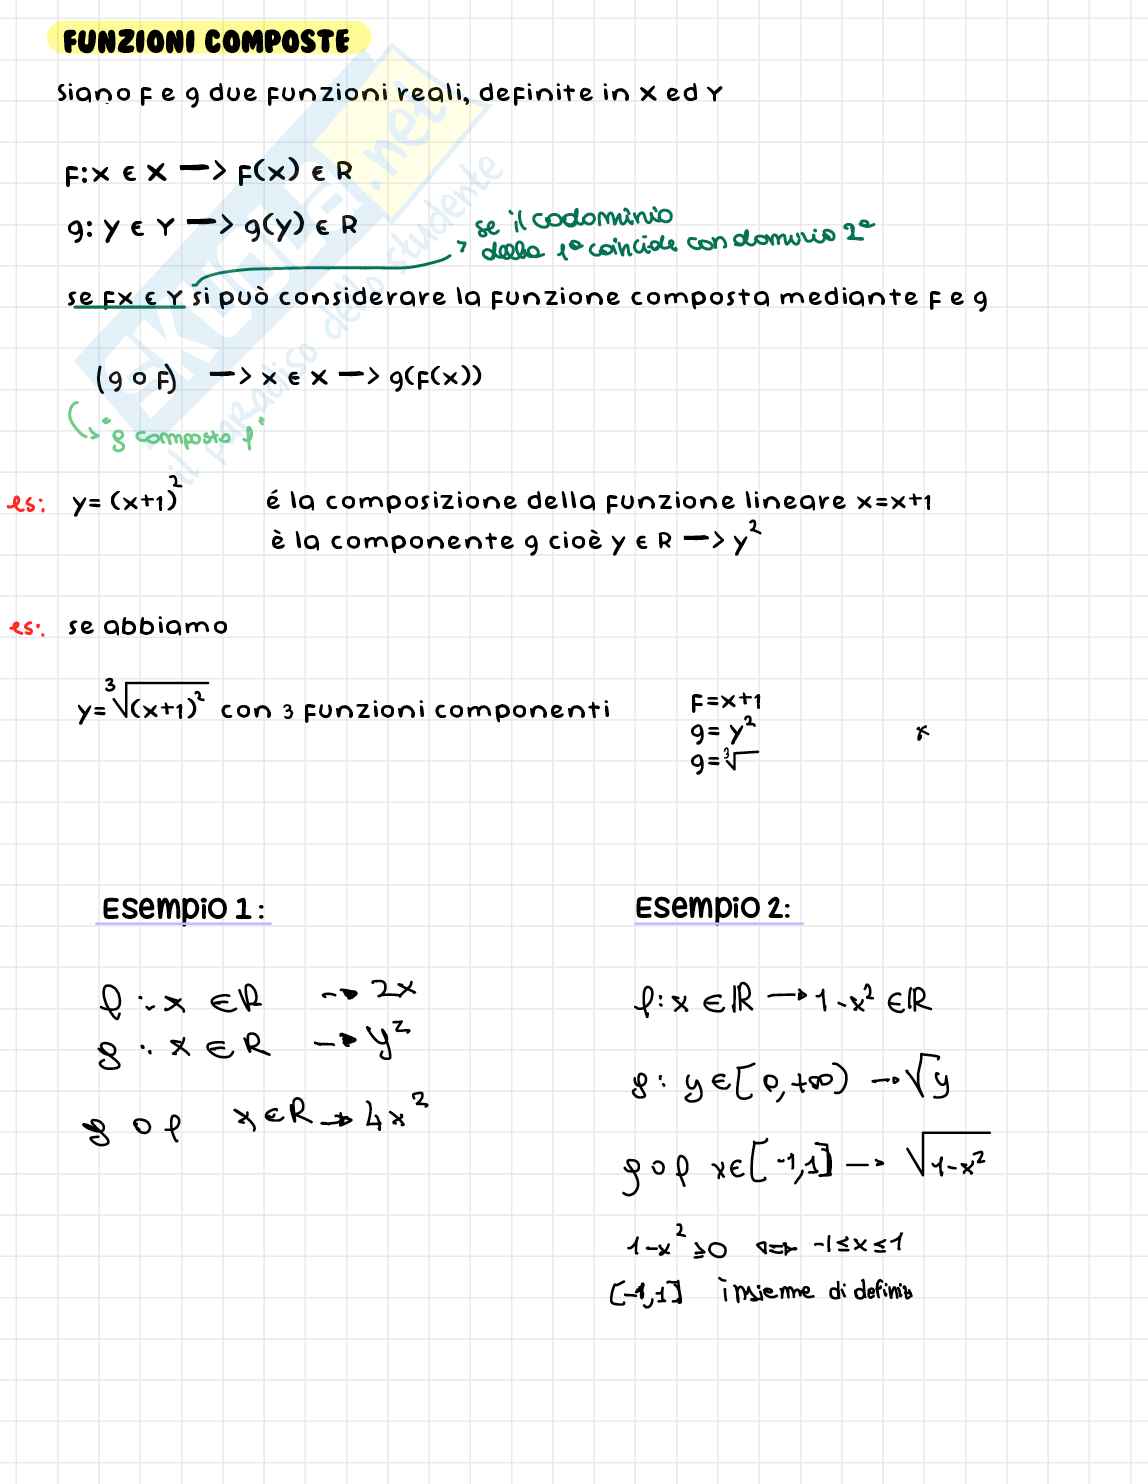 FUNZIONI COMPOSTE
Siano F e g due funzioni reali, definite in X ed Y
F: x ∈ X —> F(x) ∈ R
g: y ∈ Y —> g(y) ∈ R
se il codominio
della 1ª coincide con dominio 2ª
se Fx ∈ Y si può considerare la funzione composta mediante F e g
(g o F) —> x ∈ x —> g(F(x))
"g composto f"
es: y = (x+1)² é la composizione della funzione lineare x=x+1
è la componente g cioè y ∈ R —> y²
es: se abbiamo
y=∛(x+1)² con 3 funzioni componenti
F=x+1
g= y²
g=∛
x
Esempio 1:
f : x ∈ R → 2x
g : x ∈ R → y²
g o f x ∈ R → 4x²
Esempio 2:
f: x ∈ R → 1-x² ∈ R
g: y ∈ [0,+∞) → √y
g o f x ∈ [-1,1] → √1-x²
1-x² ≥ 0 <=> -1≤x≤1
[-1,1] insieme di definiz
SKUOLA.net
il paradiso dello studente